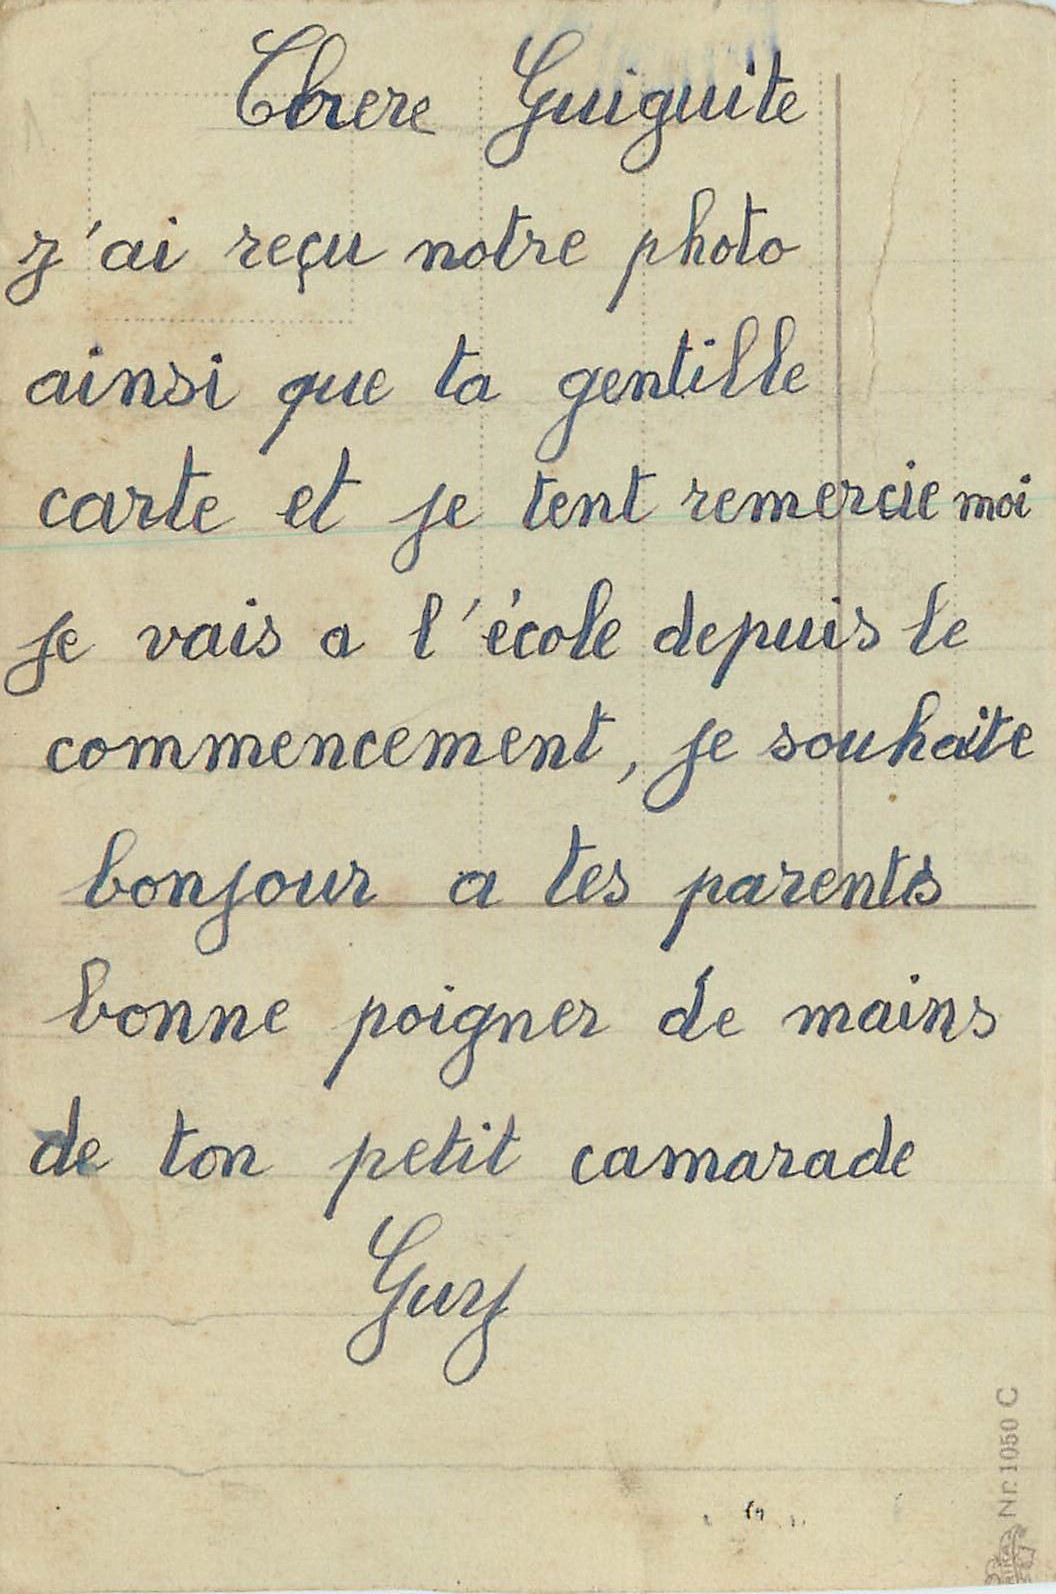 Chere Guiguite
j'ai reçu notre photo
ainsi que ta gentille
carte et je tent remercie moi
je vais a l'école depuis le
commencement, je souhaite
bonjour a tes parents
bonne poigner de mains
de ton petit camarade
Guy
Nr. 1050 C